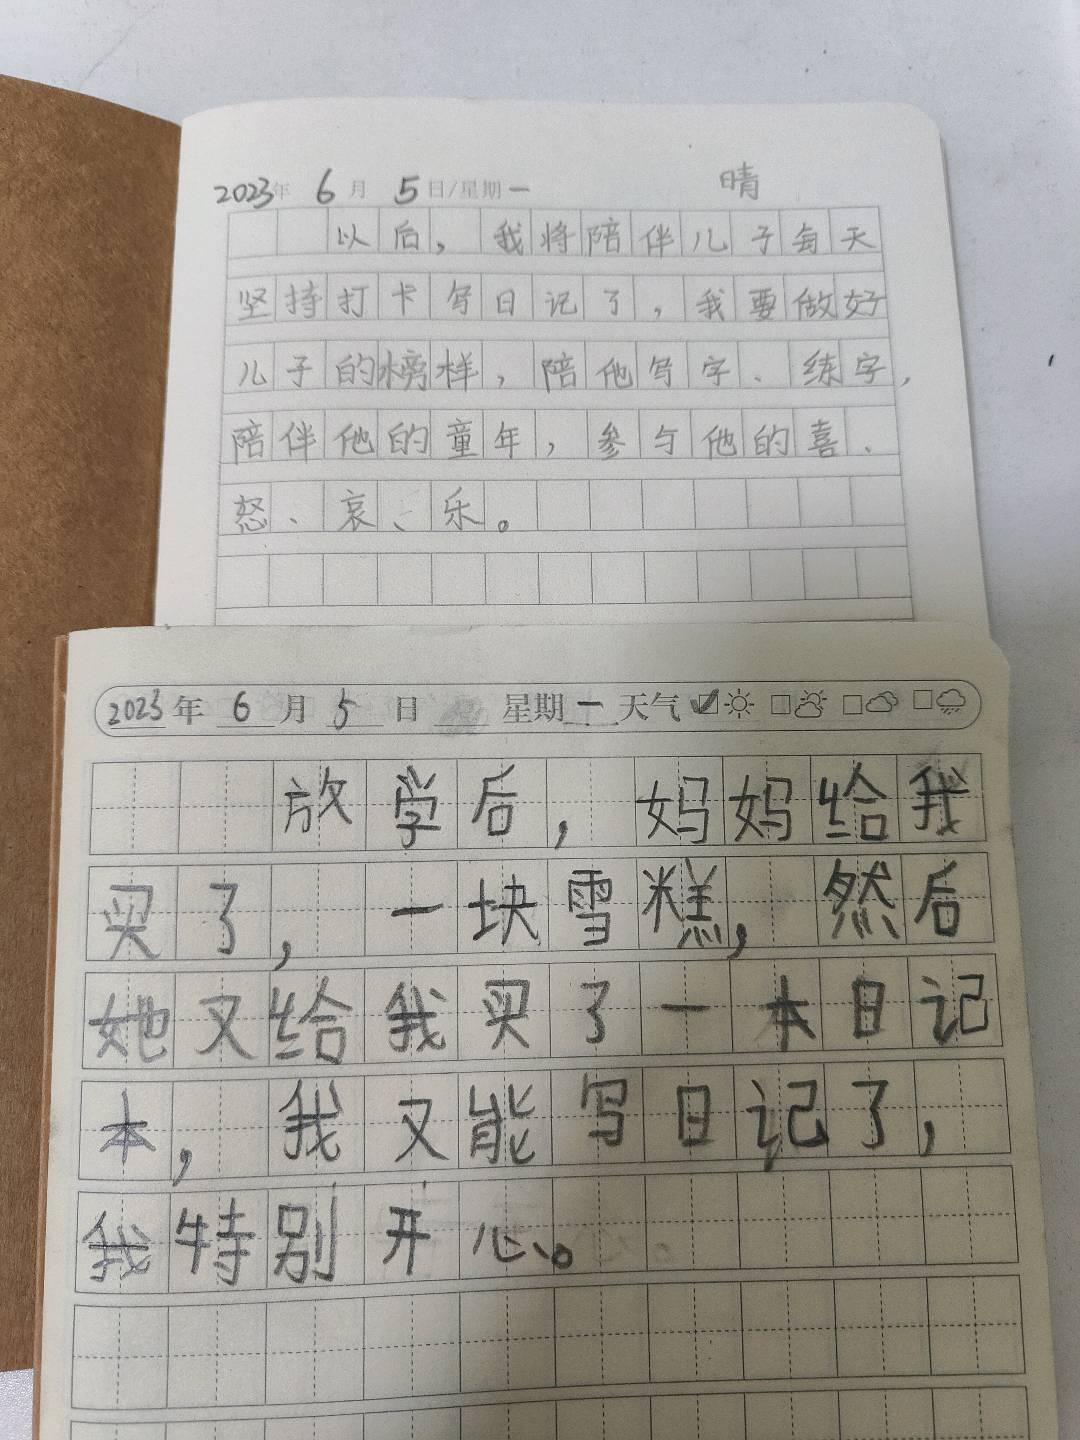 2023年 6月 5日/星期一 晴
以后，我将陪伴儿子每天
坚持打卡写日记了，我要做好
儿子的榜样，陪他写字、练字，
陪伴他的童年，参与他的喜、
怒、哀、乐。
2023年 6月 5日 星期一 天气
放学后，妈妈给我
买了，一块雪糕，然后
她又给我买了一本日记
本，我又能写日记了，
我特别开心。